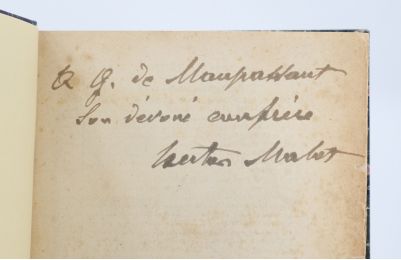 à G. de Maupassant
Son dévoué confrère
Hector Malot